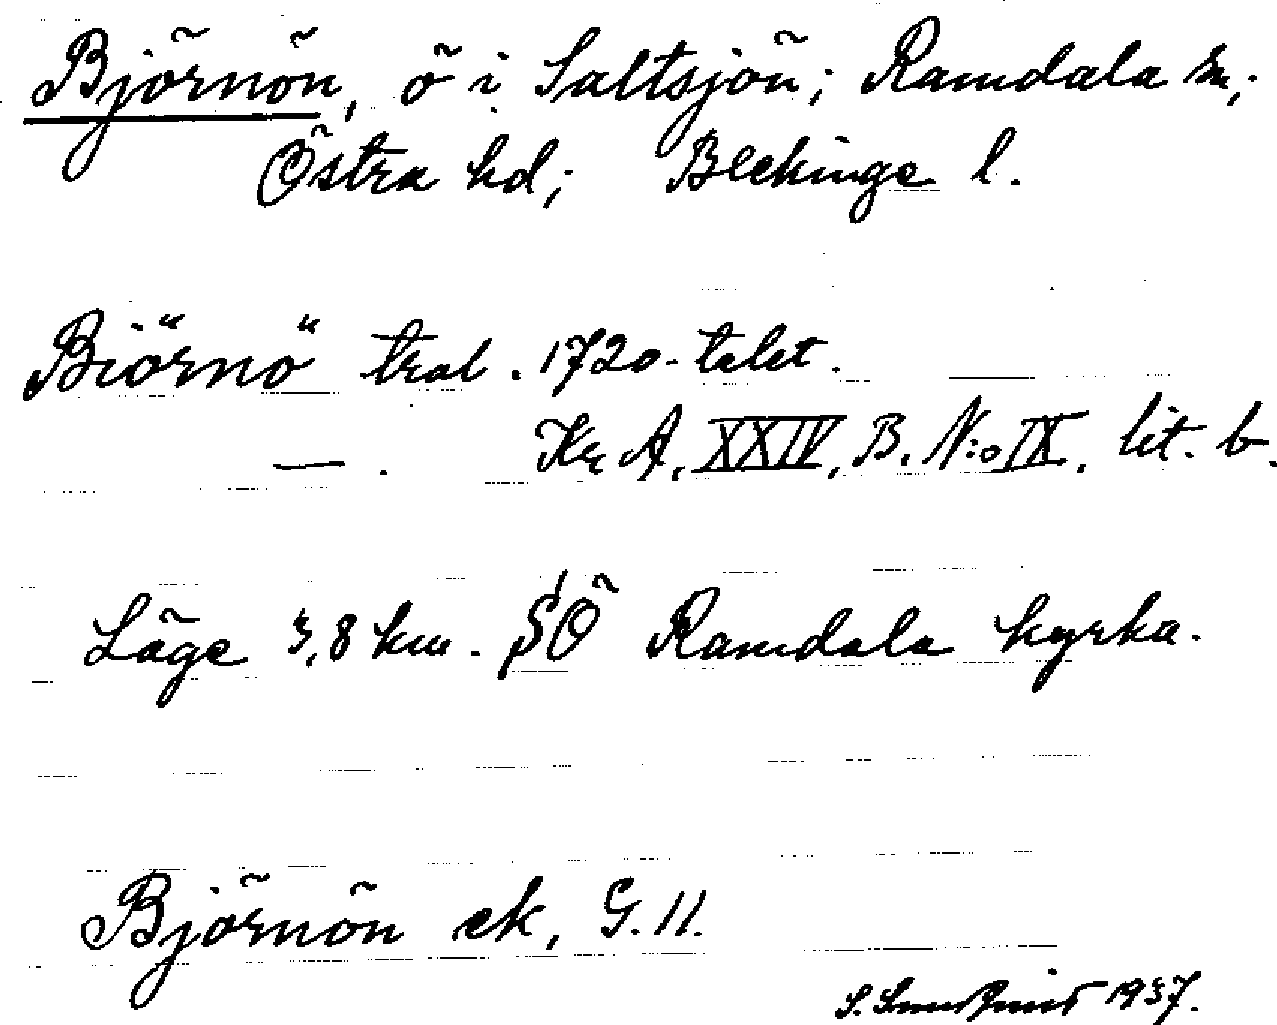 Björnön, ö i Saltsjön; Ramdala sn;
Östra hd; Blekinge l.
Biörnö trol. 1720-talet.
— . Kr A, XXIV, B. N:o IX, lit. b.
Läge 3,8 km. SÖ Ramdala kyrka.
Björnön ek, G. 11.
S. 1937.